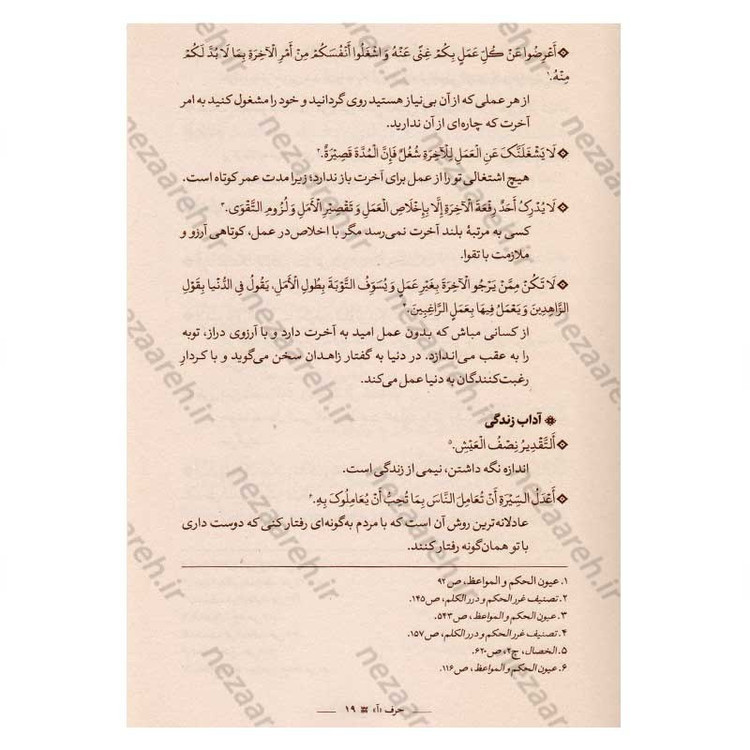 ❖ أَعْرِضُوا عَنْ كُلِّ عَمَلٍ بِكُمْ غِنًى عَنْهُ وَ اشْغَلُوا أَنْفُسَكُمْ مِنْ أَمْرِ الْآخِرَةِ بِمَا لَا بُدَّ لَكُمْ
مِنْهُ.۱
از هر عملی که از آن بی‌نیاز هستید روی گردانید و خود را مشغول کنید به امر
آخرت که چاره‌ای از آن ندارید.
❖ لَا يَشْغَلَنَّكَ عَنِ الْعَمَلِ لِلْآخِرَةِ شُغُلٌ فَإِنَّ الْمُدَّةَ قَصِيرَةٌ.۲
هیچ اشتغالی تو را از عمل برای آخرت باز ندارد؛ زیرا مدت عمر کوتاه است.
❖ لَا يُدْرِكُ أَحَدٌ رِفْعَةَ الْآخِرَةِ إِلَّا بِإِخْلَاصِ الْعَمَلِ وَ تَقْصِيرِ الْأَمَلِ وَ لُزُومِ التَّقْوَى.۳
کسی به مرتبهٔ بلند آخرت نمی‌رسد مگر با اخلاص در عمل، کوتاهی آرزو و
ملازمت با تقوا.
❖ لَا تَكُنْ مِمَّنْ يَرْجُو الْآخِرَةَ بِغَيْرِ عَمَلٍ وَ يُسَوِّفُ التَّوْبَةَ بِطُولِ الْأَمَلِ، يَقُولُ فِي الدُّنْيَا بِقَوْلِ
الزَّاهِدِينَ وَ يَعْمَلُ فِيهَا بِعَمَلِ الرَّاغِبِينَ.۴
از کسانی مباش که بدون عمل امید به آخرت دارد و با آرزوی دراز، توبه
را به عقب می‌اندازد. در دنیا به گفتار زاهدان سخن می‌گوید و با کردارِ
رغبت‌کنندگان به دنیا عمل می‌کند.
آداب زندگی
❖ أَلتَّقْدِيرُ نِصْفُ الْعَيْشِ.۵
اندازه نگه داشتن، نیمی از زندگی است.
❖ أَعْدَلُ السِّيرَةِ أَنْ تُعَامِلَ النَّاسَ بِمَا تُحِبُّ أَنْ يُعَامِلُوكَ بِهِ.۶
عادلانه‌ترین روش آن است که با مردم به‌گونه‌ای رفتار کنی که دوست داری
با تو همان‌گونه رفتار کنند.
۱. عیون الحکم و المواعظ، ص۹۲
۲. تصنیف غرر الحکم و درر الکلم، ص۱۴۵.
۳. عیون الحکم و المواعظ، ص۵۴۳.
۴. تصنیف غرر الحکم و درر الکلم، ص۱۵۷.
۵. الخصال، ج۲، ص۶۲۰.
۶. عیون الحکم و المواعظ، ص۱۱۶.
حرف «آ» ۱۹
nezaareh.ir